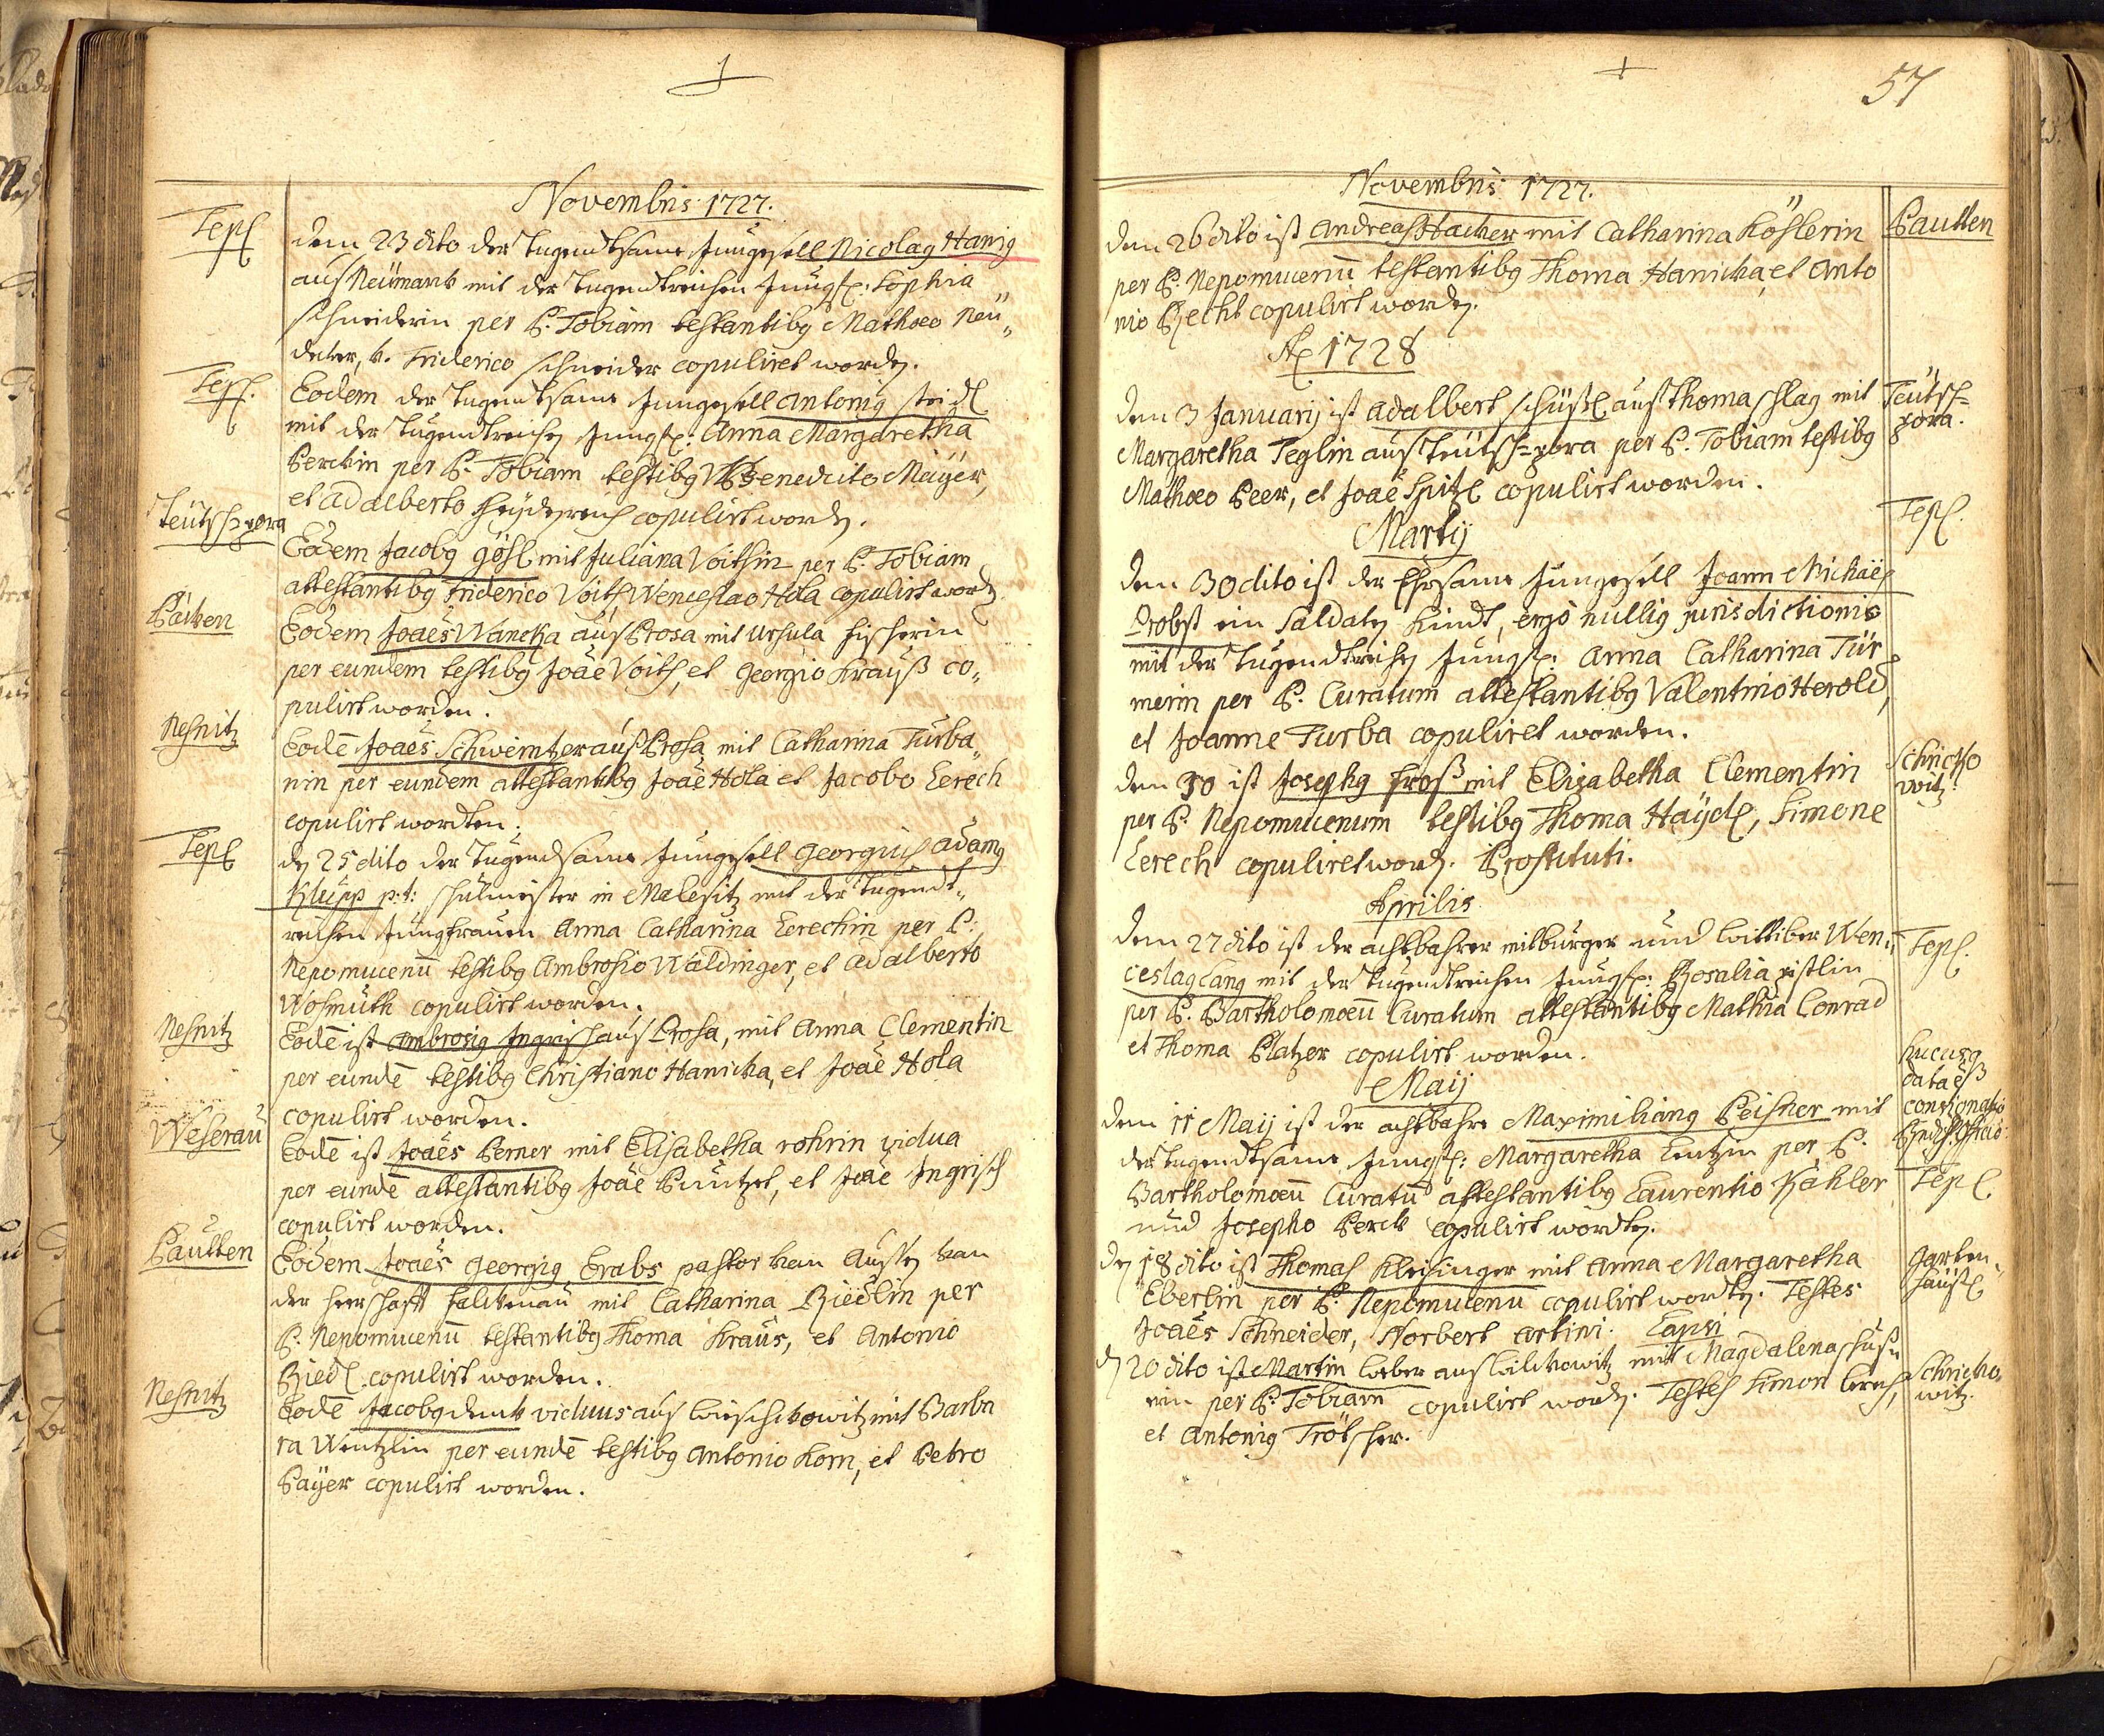 Novembris 1727.
Tepl
dem 23 dito der tugendtsame Junggesell Nicolag Hanig
aus Neümark mit der tugendtreichen Jungf: Sophia
Schneiderin per P. Tobiam testantibg Mathæo Neü„
deker, et. Friderico Schneider copuliret worden.
Tepl.
Eodem der tugendtsame Junggesell Antonig Steidl
mit der tugendtreichen Jungf: Anna Margaretha
Perckin per P. Tobiam testibg Benedicto Maÿer,
et Adalberto Heÿdenreich copulirt worden.
Teutsch=zora
Eodem Jacobg Gösl mit Juliana Voithin per P. Tobiam
attestantibg Friderico Voith, Wenceslao Hola copulirt word.
Päken
Eodem Joaës Wancka aus Prosa mit Ursula Fischerin
per eundem testibg Joaë Voith, et Georgio Krauß co„
pulirt worden.
Nesnitz
Eodē Joaës Schwimtzer aus Prosa mit Catharina Turba„
nin per eundem attestantibg Joaë Hola et Jacobo Lerech
copulirt wordten.
Tepl
den 25 dito der tugendsame Junggesell Georgius Adamg
Klupp p.t: schulmeister in Malesitz mit der tugendt„
reichen Jungfrauen Anna Catharina Lerechin per P:
Nepomucenū testibg Ambrosio Waldinger, et Adalberto
Wosmuth copulirt worden.
Nesnitz
Eodē ist Ambrosig Ingrisch aus Prosa, mit Anna Clementin
per eundē testibg Christiano Hanicka, et Joaë Hola
copulirt worden.
Weserau
Eodē ist Joaës Pemer mit Elisabetha rohrin vidua
per eundē attestantibg Joaë Puntzet, et Joaë Ingrisch
copulirt worden.
Pautten
Eodem Joaës Georgig Krabs pastor
der Herrschafft Falckenau mit Catharina Riedlin per
P. Nepomucenū testantibg Thoma Kraus, et Antonio
Riedl copulirt worden.
Nesnitz
Eodē Jacobg Denk viduus aus mit Barba
ra Wentzlin per eundē testibg Antonio Korn, et Petro
Paÿer copulirt worden.
57
Novembris 1727.
Pautten
den 26 dito ist Andreas Hacker mit Catharina Köslerin
per P. Nepomucenū testantibg Thoma Hanicka, et Anto
nio Hecht copulirt worden.
Aō 1728
Teutsch=
zora.
den 3 Januarij ist Adalbert Schüßl aus Thomaschlag mit
Margaretha Teglin aus Teütsch=zora per P. Tobiam testibg
Mathæo Peer, et Joaë Spitzl copulirt worden.
Martij
Tepl.
den 30 dito ist der Ehrsame Junggesell Joann Michaël
Probst ein Saldaten Kindt, ergo nullig jurisdictionis
mit der tugendtreichen Jungf: Anna Catharina Tür„
merin per P. Curatum attestantibg Valentino Herold,
et Joanne Turba copuliret worden.
Schricko
witz.
den 30 ist Josephg Froß mit Elisabetha Clementin
per P. Nepomucenum testibg Thoma Haÿdl, Simone
Lerech copuliret word. Prostituti.
Aprilis
Tepl.
den 27 dito ist der achtbahrer mitburger und Wittiber Wen„
ceslag Lang mit der tugendtreichen Jungf: Rosalia
per P. Bartholomæū Curatum attestantibg Mathia Conrad
et Thoma Platzer copulirt worden.
Maij
hucusg
data ëß
consignatio
Tepl
den 11 Maij ist der achtbahre Maximiliang Peisner mit
der tugendtsame Jungf: Margaretha Lentzin per P.
Bartholomæū Curatū attestantibg Laurentio Köhler
und Josepho Perck copulirt wordten.
Garten„
häusl
den 18 dito ist Thomas Kleisinger mit Anna Margaretha
Eberlin per P. Nepomucenū copulirt wordten. Testes
Joaës Schneider, Norbert Artini. Lapsi
Schricko„
witz.
den 20 dito ist Martin Weber aus mit Magdalena
rin per P. Tobiam copulirt worden. Testes Simon Lerech,
et Antonig Trötscher.